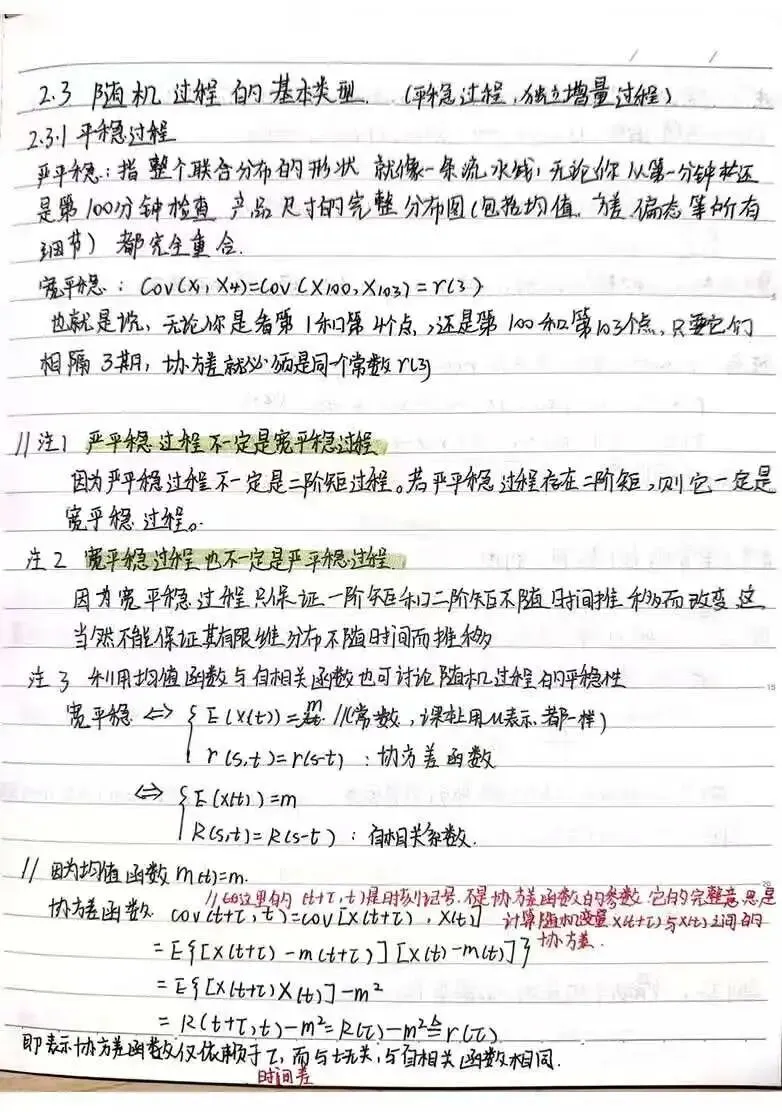 2.3 随机过程的基本类型. (平稳过程,独立增量过程)
2.3.1 平稳过程
严平稳:指整个联合分布的形状 就像一条流水线,无论你从第一分钟检还
是第100分钟检查 产品尺寸的完整分布图(包括均值.方差.偏态等所有
细节) 都完全重合.
宽平稳: Cov(X1,X4)=Cov(X100,X103)=r(3)
也就是说,无论你是看第1和第4个点,还是第100和第103个点,只要它们
相隔3期,协方差就必须是同一个常数r(3)
//注1 严平稳过程不一定是宽平稳过程
因为严平稳过程不一定是二阶矩过程。若严平稳过程存在二阶矩,则它一定是
宽平稳过程。
注2 宽平稳过程也不一定是严平稳过程
因为宽平稳过程只保证一阶矩和二阶矩不随时间推移而改变.这
当然不能保证其有限维分布不随时间而推移
注3 利用均值函数与自相关函数也可讨论随机过程的平稳性
宽平稳 ⇔ { E(X(t))=m //(常数,课本上用u表示 都一样)
r(s,t)=r(s-t) : 协方差函数
⇔ { E(X(t))=m
R(s,t)=R(s-t) : 自相关系数.
// 因为均值函数 m(t)=m.
//这里的(t+τ,t)是时刻记号.不是协方差函数的参数.它的完整意思是
协方差函数. cov(t+τ,t)=cov[X(t+τ),X(t)] 计算随机变量X(t+τ)与X(t)之间的
协方差.
=E{[X(t+τ)-m(t+τ)][X(t)-m(t)]}
=E{[X(t+τ)X(t)]-m²
=R(t+τ,t)-m²=R(τ)-m²≜r(τ)
即表示协方差函数仅依赖于τ,而与t无关,与自相关函数相同.
时间差